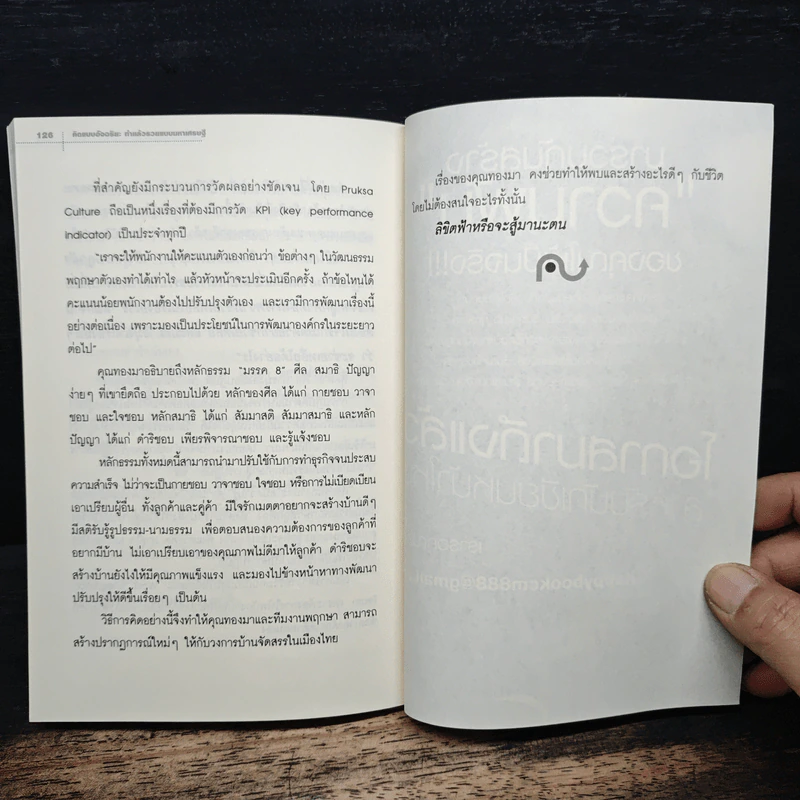 126 คิดแบบอัจฉริยะ ทำแล้วรวยแบบมหาเศรษฐี
ที่สำคัญยังมีกระบวนการวัดผลอย่างชัดเจน โดย Pruksa
Culture ถือเป็นหนึ่งเรื่องที่ต้องมีการวัด KPI (key performance
indicator) เป็นประจำทุกปี
"เราจะให้พนักงานให้คะแนนตัวเองก่อนว่า ข้อต่างๆ ในวัฒนธรรม
พฤกษาตัวเองทำได้เท่าไร แล้วหัวหน้าจะประเมินอีกครั้ง ถ้าข้อไหนได้
คะแนนน้อยพนักงานต้องไปปรับปรุงตัวเอง และเรามีการพัฒนาเรื่องนี้
อย่างต่อเนื่อง เพราะมองเป็นประโยชน์ในการพัฒนาองค์กรในระยะยาว
ต่อไป"
คุณทองมาอธิบายถึงหลักธรรม "มรรค 8" ศีล สมาธิ ปัญญา
ง่ายๆ ที่เขายึดถือ ประกอบไปด้วย หลักของศีล ได้แก่ กายชอบ วาจา
ชอบ และใจชอบ หลักสมาธิ ได้แก่ สัมมาสติ สัมมาสมาธิ และหลัก
ปัญญา ได้แก่ ดำริชอบ เพียรพิจารณาชอบ และรู้แจ้งชอบ
หลักธรรมทั้งหมดนี้สามารถนำมาปรับใช้กับการทำธุรกิจจนประสบ
ความสำเร็จ ไม่ว่าจะเป็นกายชอบ วาจาชอบ ใจชอบ หรือการไม่เบียดเบียน
เอาเปรียบผู้อื่น ทั้งลูกค้าและคู่ค้า มีใจรักเมตตาอยากจะสร้างบ้านดีๆ
มีสติรับรู้รูปธรรม-นามธรรม เพื่อตอบสนองความต้องการของลูกค้าที่
อยากมีบ้าน ไม่เอาเปรียบเอาของคุณภาพไม่ดีมาให้ลูกค้า ดำริชอบจะ
สร้างบ้านยังไงให้มีคุณภาพแข็งแรง และมองไปข้างหน้าหาทางพัฒนา
ปรับปรุงให้ดีขึ้นเรื่อยๆ เป็นต้น
วิธีการคิดอย่างนี้จึงทำให้คุณทองมาและทีมงานพฤกษา สามารถ
สร้างปรากฏการณ์ใหม่ๆ ให้กับวงการบ้านจัดสรรในเมืองไทย
เรื่องของคุณทองมา คงช่วยทำให้พบและสร้างอะไรดีๆ กับชีวิต
โดยไม่ต้องสนใจอะไรทั้งนั้น
ลิขิตฟ้าหรือจะสู้มานะตน